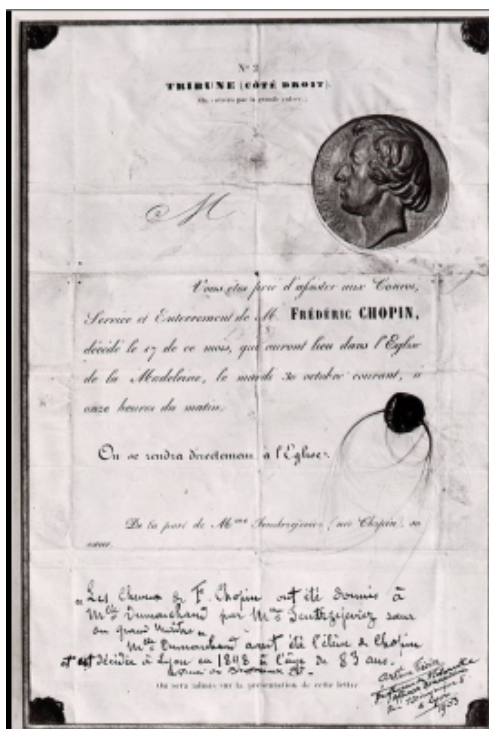 Nº 2
TRIBUNE (CÔTÉ DROIT).
On entrera par la grande
M
Vous êtes prié d'assister aux Convoi,
Service et Enterrement de M. FRÉDÉRIC CHOPIN,
décédé le 17 de ce mois, qui auront lieu dans l'Eglise
de la Madeleine, le mardi 30 octobre courant, à
onze heures du matin.
On se rendra directement à l'Eglise.
De la part de Mme (née Chopin), sa
sœur.
"Les Cheveux de F. Chopin ont été donnés à
Mlle Dumarchand par Mme Jentrzejevicz sœur
du grand Maître"
Mlle Dumarchand avait été l'élève de Chopin
et est décédée à Lyon en 1898 à l'âge de 83 ans.
On sera admis sur la présentation de cette lettre
à Lyon
1903